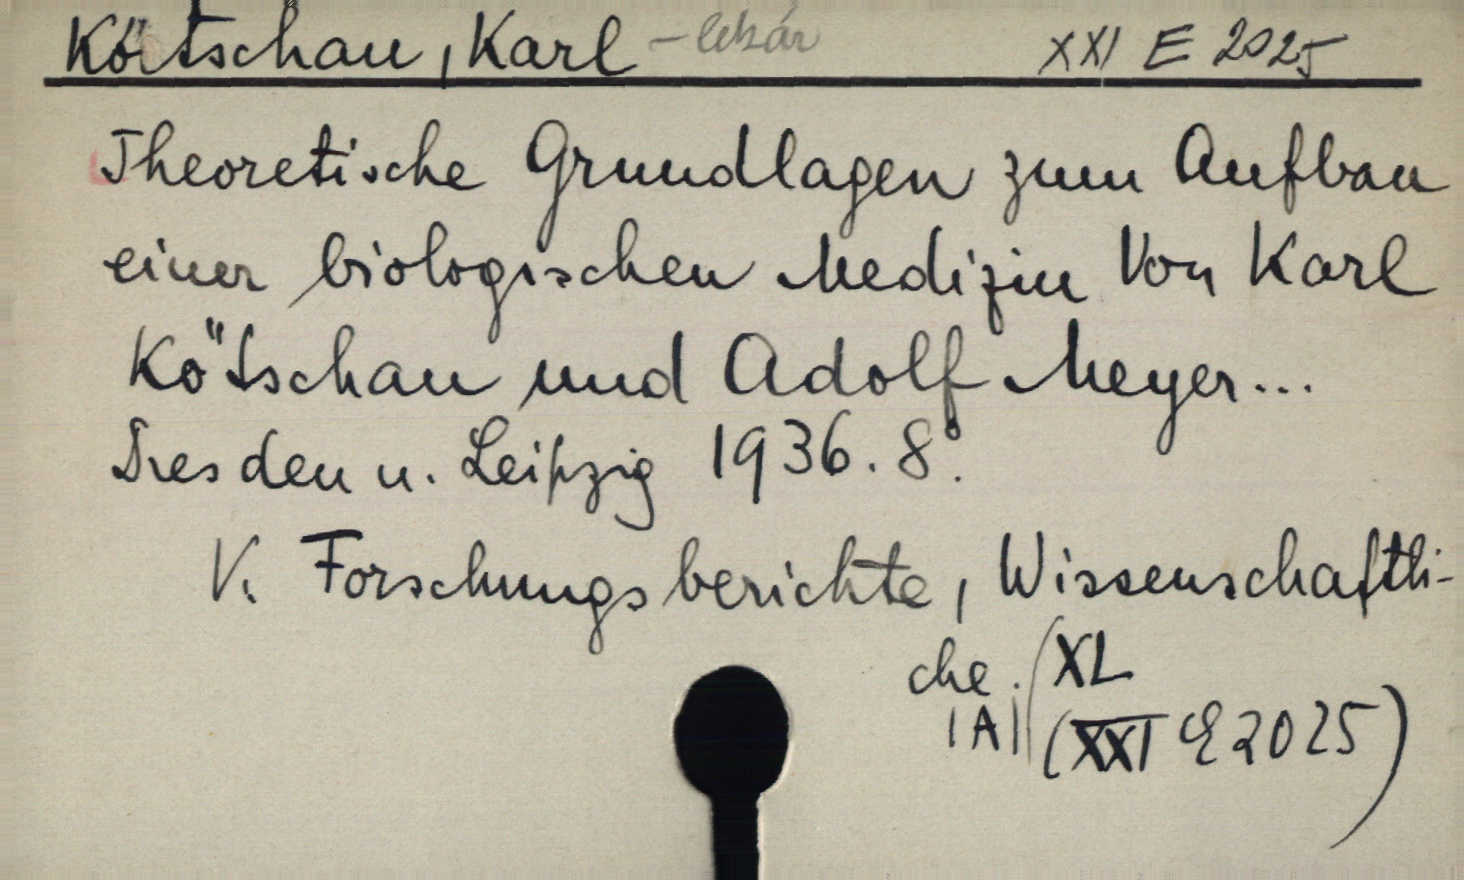 Kötschau, Karl – lekár XXI E 2025
Theoretische Grundlagen zum Aufbau
einer biologischen Medizin Von Karl
Kötschau und Adolf Meyer...
Dresden u. Leipzig 1936. 8°.
V. Forschungsberichte, Wissenschaftli-
che. XL
|A| (XXI E 2025)